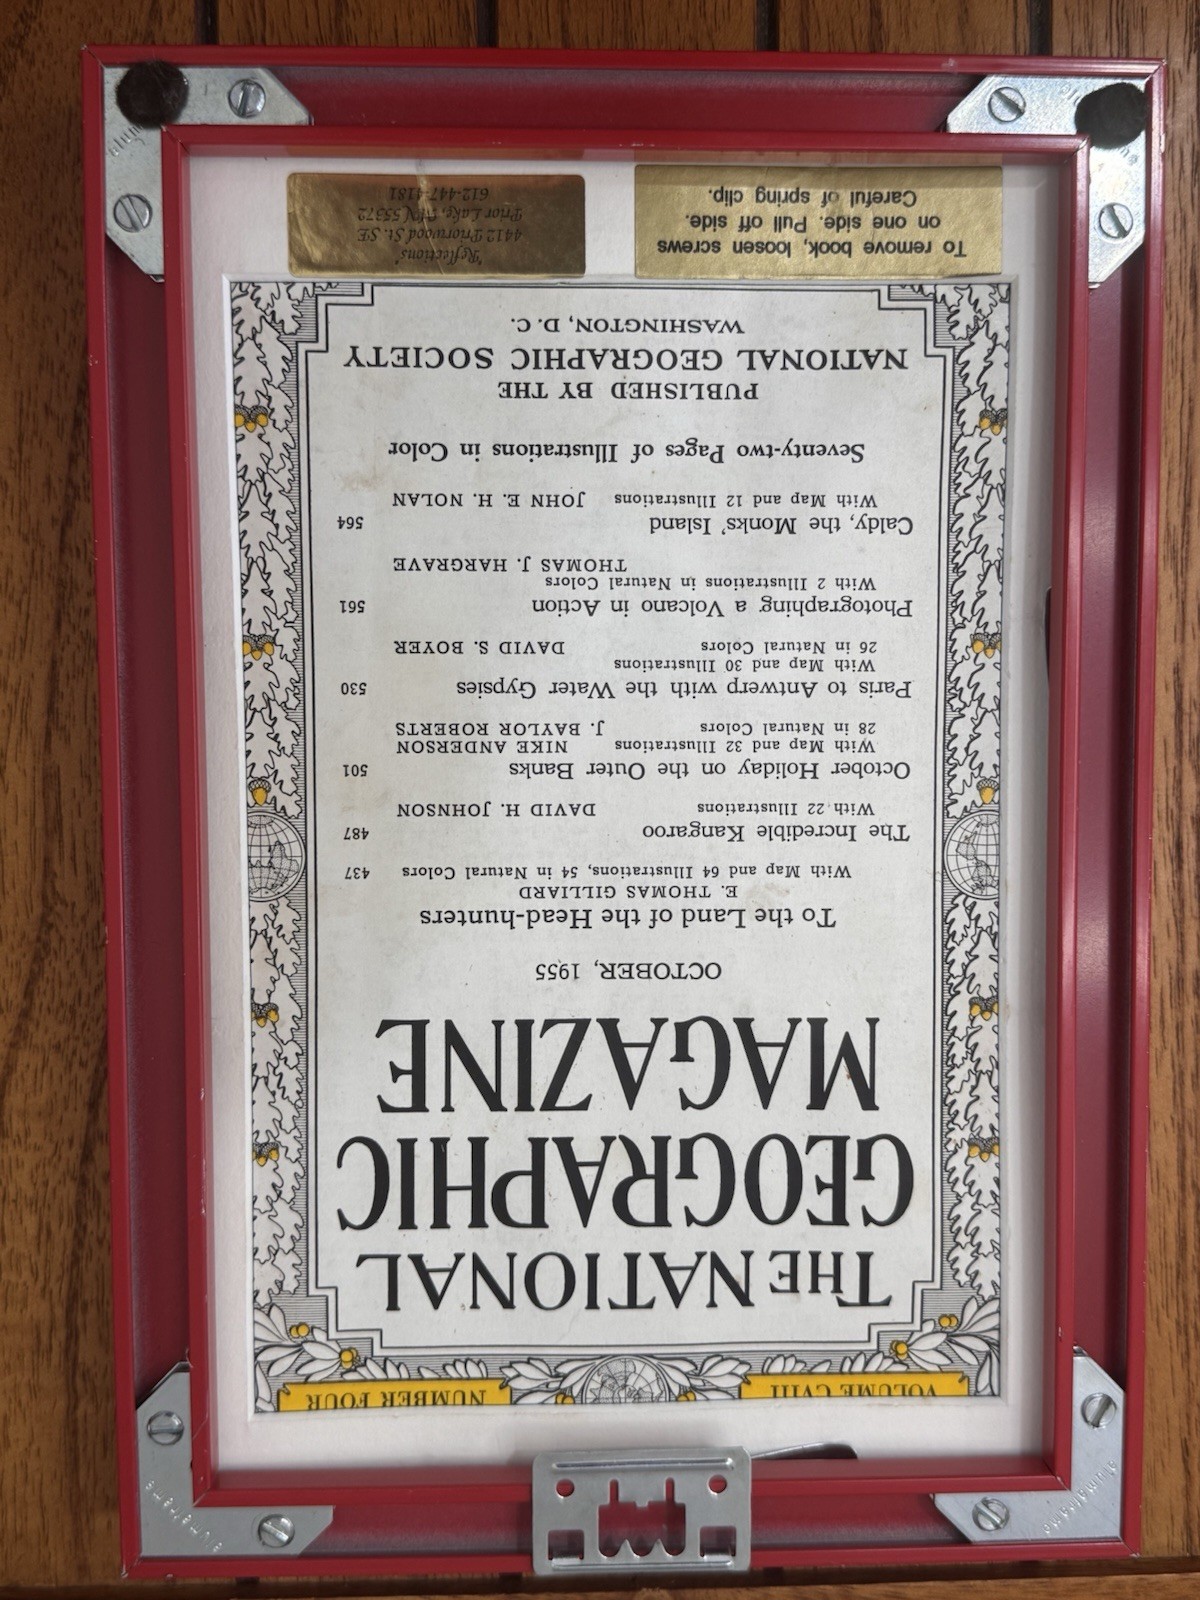 VOLUME CVIII
NUMBER FOUR
THE NATIONAL
GEOGRAPHIC
MAGAZINE
OCTOBER, 1955
To the Land of the Head-hunters
E. THOMAS GILLIARD
With Map and 64 Illustrations, 54 in Natural Colors 437
The Incredible Kangaroo 487
With 22 Illustrations DAVID H. JOHNSON
October Holiday on the Outer Banks 501
With Map and 32 Illustrations NIKE ANDERSON
28 in Natural Colors J. BAYLOR ROBERTS
Paris to Antwerp with the Water Gypsies 530
With Map and 30 Illustrations
26 in Natural Colors DAVID S. BOYER
Photographing a Volcano in Action 561
With 2 Illustrations in Natural Colors
THOMAS J. HARGRAVE
Caldy, the Monks' Island 564
With Map and 12 Illustrations JOHN E. H. NOLAN
Seventy-two Pages of Illustrations in Color
PUBLISHED BY THE
NATIONAL GEOGRAPHIC SOCIETY
WASHINGTON, D. C.
To remove book, loosen screws
on one side. Pull off side.
Careful of spring clip.
"Reflections"
4412 Priorwood St. SE
Prior Lake, MN 55372
612-447-4181
alumaframe
alumaframe